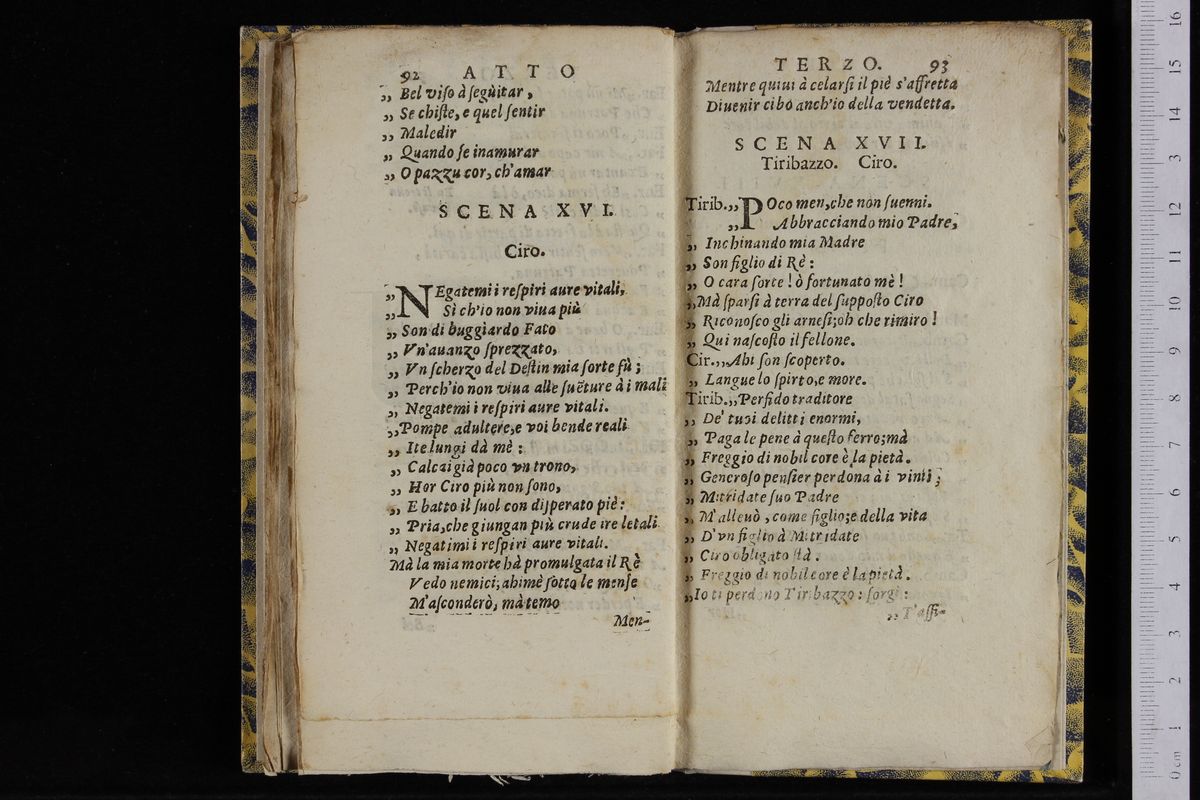 92 ATTO
„ Bel viſo à ſegùitar,
„ Se chiſte, e quel ſentir
„ Maledir
„ Quando ſe inamurar
„ O pazzu cor, ch'amar
SCENA XVI.
Ciro.
„ NEgatemi i reſpiri aure vitali,
„ Sì ch'io non viua più
„ Son di buggiardo Fato
„ Vn'auanzo ſprezzato,
„ Vn ſcherzo del Deſtin mia ſorte fù;
„ Perch'io non viua alle ſuēture à i mali
„ Negatemi i reſpiri aure vitali.
„ Pompe adultere, e voi bende reali
„ Ite lungi dà mè:
„ Calcai già poco vn trono,
„ Hor Ciro più non ſono,
„ E batto il ſuol con diſperato piè:
„ Pria, che giungan più crude ire letali
„ Negatimi i reſpiri aure vitali.
Mà la mia morte hà promulgata il Rè
Vedo nemici; ahimè ſotto le menſe
M'aſconderò, mà temo
Men-
TERZO. 93
Mentre quiui à celarſi il piè s'affretta
Diuenir cibo anch'io della vendetta.
SCENA XVII.
Tiribazzo. Ciro.
Tirib. „ POco men, che non ſuenni.
„ Abbracciando mio Padre,
„ Inchinando mia Madre
„ Son figlio di Rè:
„ O cara ſorte! ò fortunato mè!
„ Mà ſparſi à terra del ſuppoſto Ciro
„ Riconoſco gli arneſi; oh che rimiro!
„ Qui naſcoſto il fellone.
Cir. „ Ahi ſon ſcoperto.
„ Langue lo ſpirto, e more.
Tirib. „ Perfido traditore
„ De' tuoi delitti enormi,
„ Paga le pene à queſto ferro; mà
„ Freggio di nobil core è la pietà.
„ Generoſo penſier perdona à i vinti;
„ Mitridate ſuo Padre
„ M'alleuò, come figlio; e della vita
„ D'vn figlio à Mitridate
„ Ciro obligato ſtà.
„ Freggio di nobil core è la pietà.
„ Io ti perdono Tiribazzo: ſorgi:
„ T'affi-